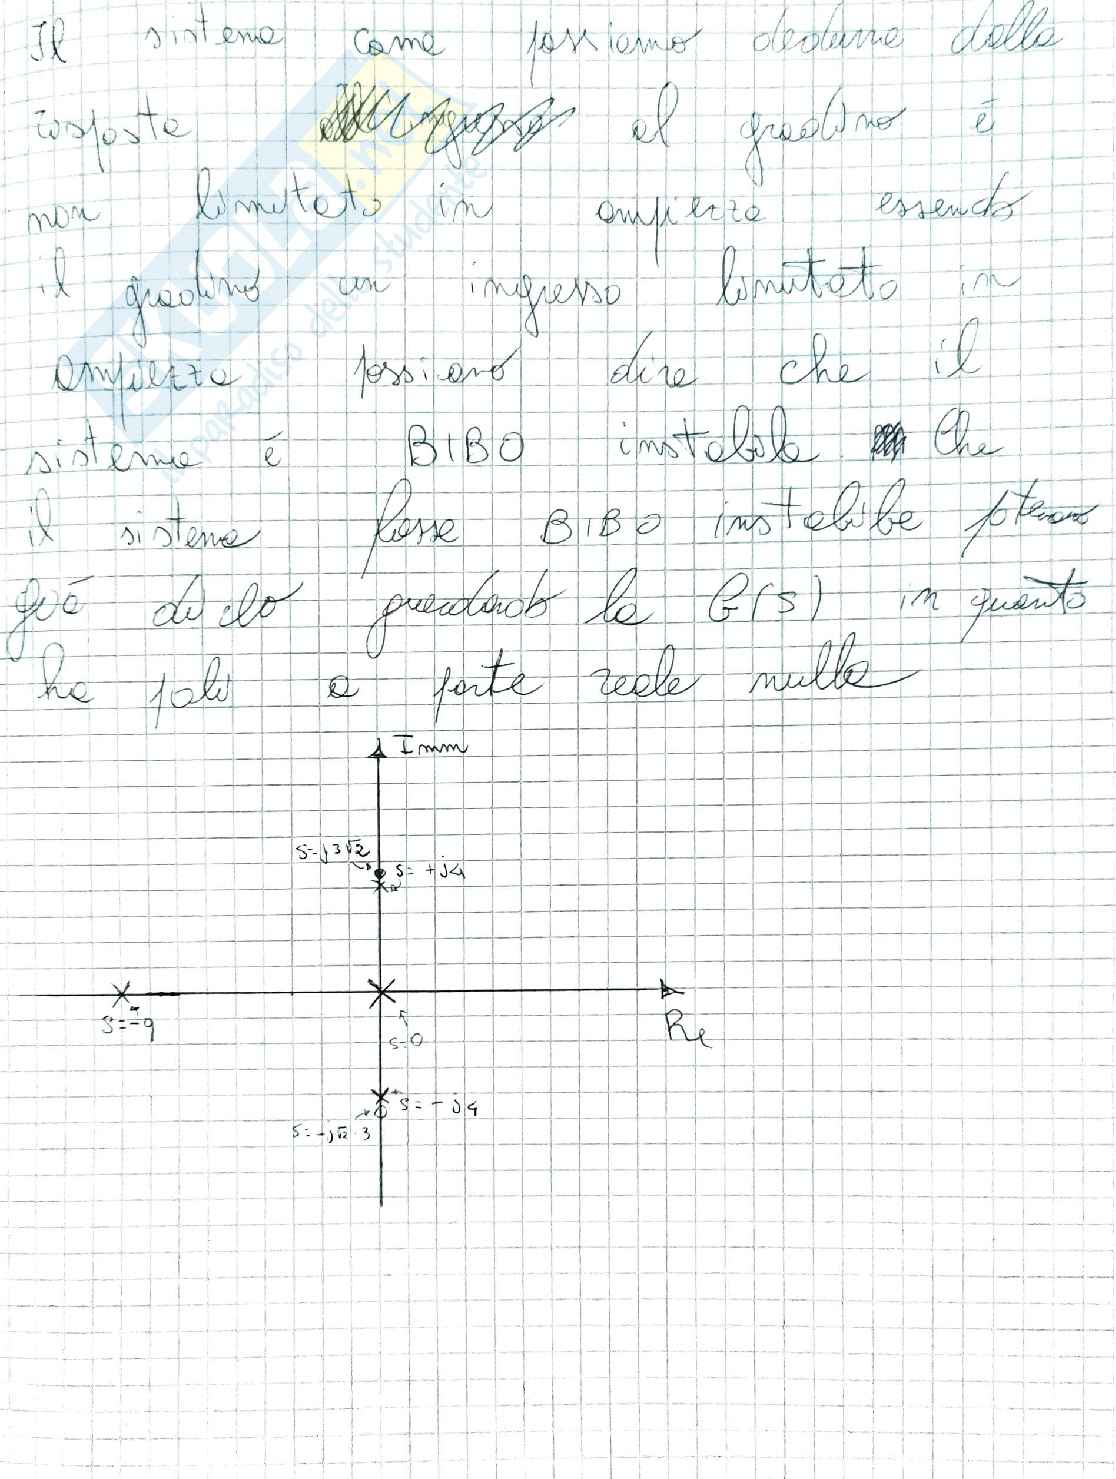 Il sistema come possiamo dedurre dalla
risposta al gradino è
non limitato in ampiezza essendo
il gradino un ingresso limitato in
ampiezza possiamo dire che il
sistema è BIBO instabile Che
il sistema fosse BIBO instabile
già dirlo guardando la G(s) in quanto
ha poli a parte reale nulla
Imm
s=j3√2
s= +j4
s=-9
s=0
Re
s= -j4
s=-j√2·3